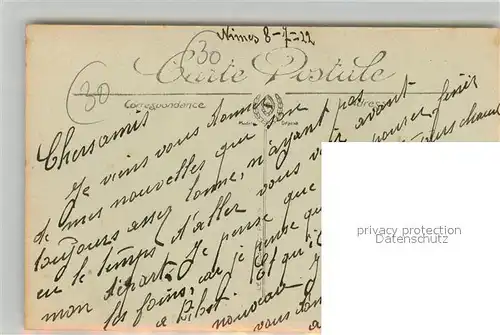 Nîmes 8-7-22
30
30
Carte Postale
Correspondance
Adresse
Chers amis
Je viens vous donner
de mes nouvelles que son
toujours assez bonne, n'ayant pas
eu le temps d'aller vous voir avant
mon départ. Je pense que
les foins, car je pense qu
Et qu'il
nouveau
privacy protection
Datenschutz